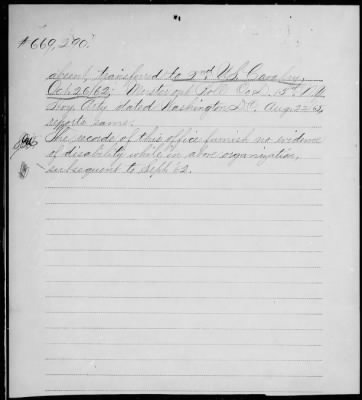 #669,290.
absent, transferred to 2nd U.S. Cavalry,
Oct. 26/62; Muster out Roll Co. D. 15th N.Y.
Hvy Arty dated Washington D.C. Aug. 22/65
reports same.
The records of this office furnish no evidence
of disability while in above organization,
subsequent to Sept. 62.